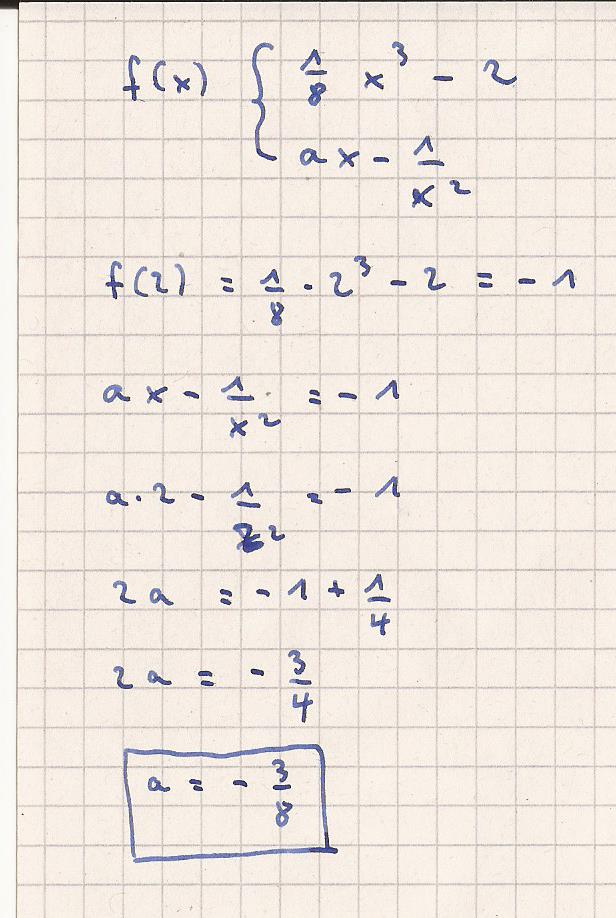 f(x) { 1/8 x³ - 2
ax - 1/x²
f(2) = 1/8 · 2³ - 2 = - 1
ax - 1/x² = - 1
a·2 - 1/2² = - 1
2a = - 1 + 1/4
2a = - 3/4
a = - 3/8